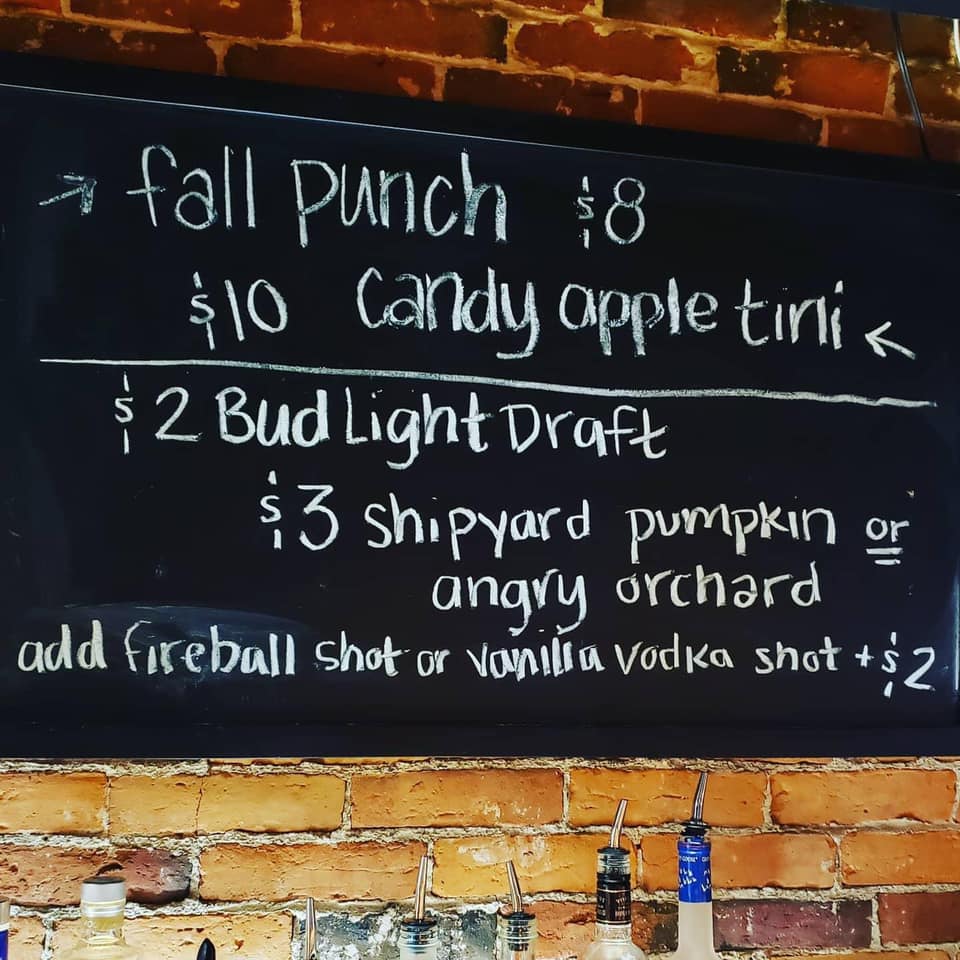 → fall punch $8
$10 Candy apple tini ←
$2 Bud Light Draft
$3 shipyard pumpkin or
angry orchard
add fireball shot or vanilla vodka shot + $2